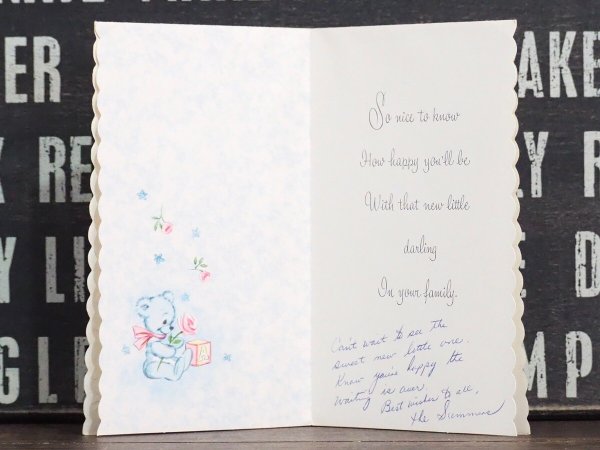 ER
AKE
K RE
Y R
Y LI
D
GL
MP
So nice to know
How happy you'll be
With that new little
darling
In your family.
Can't wait to see the
sweet new little one.
Know you're happy the
waiting is over.
Best wishes to all,
the Summers